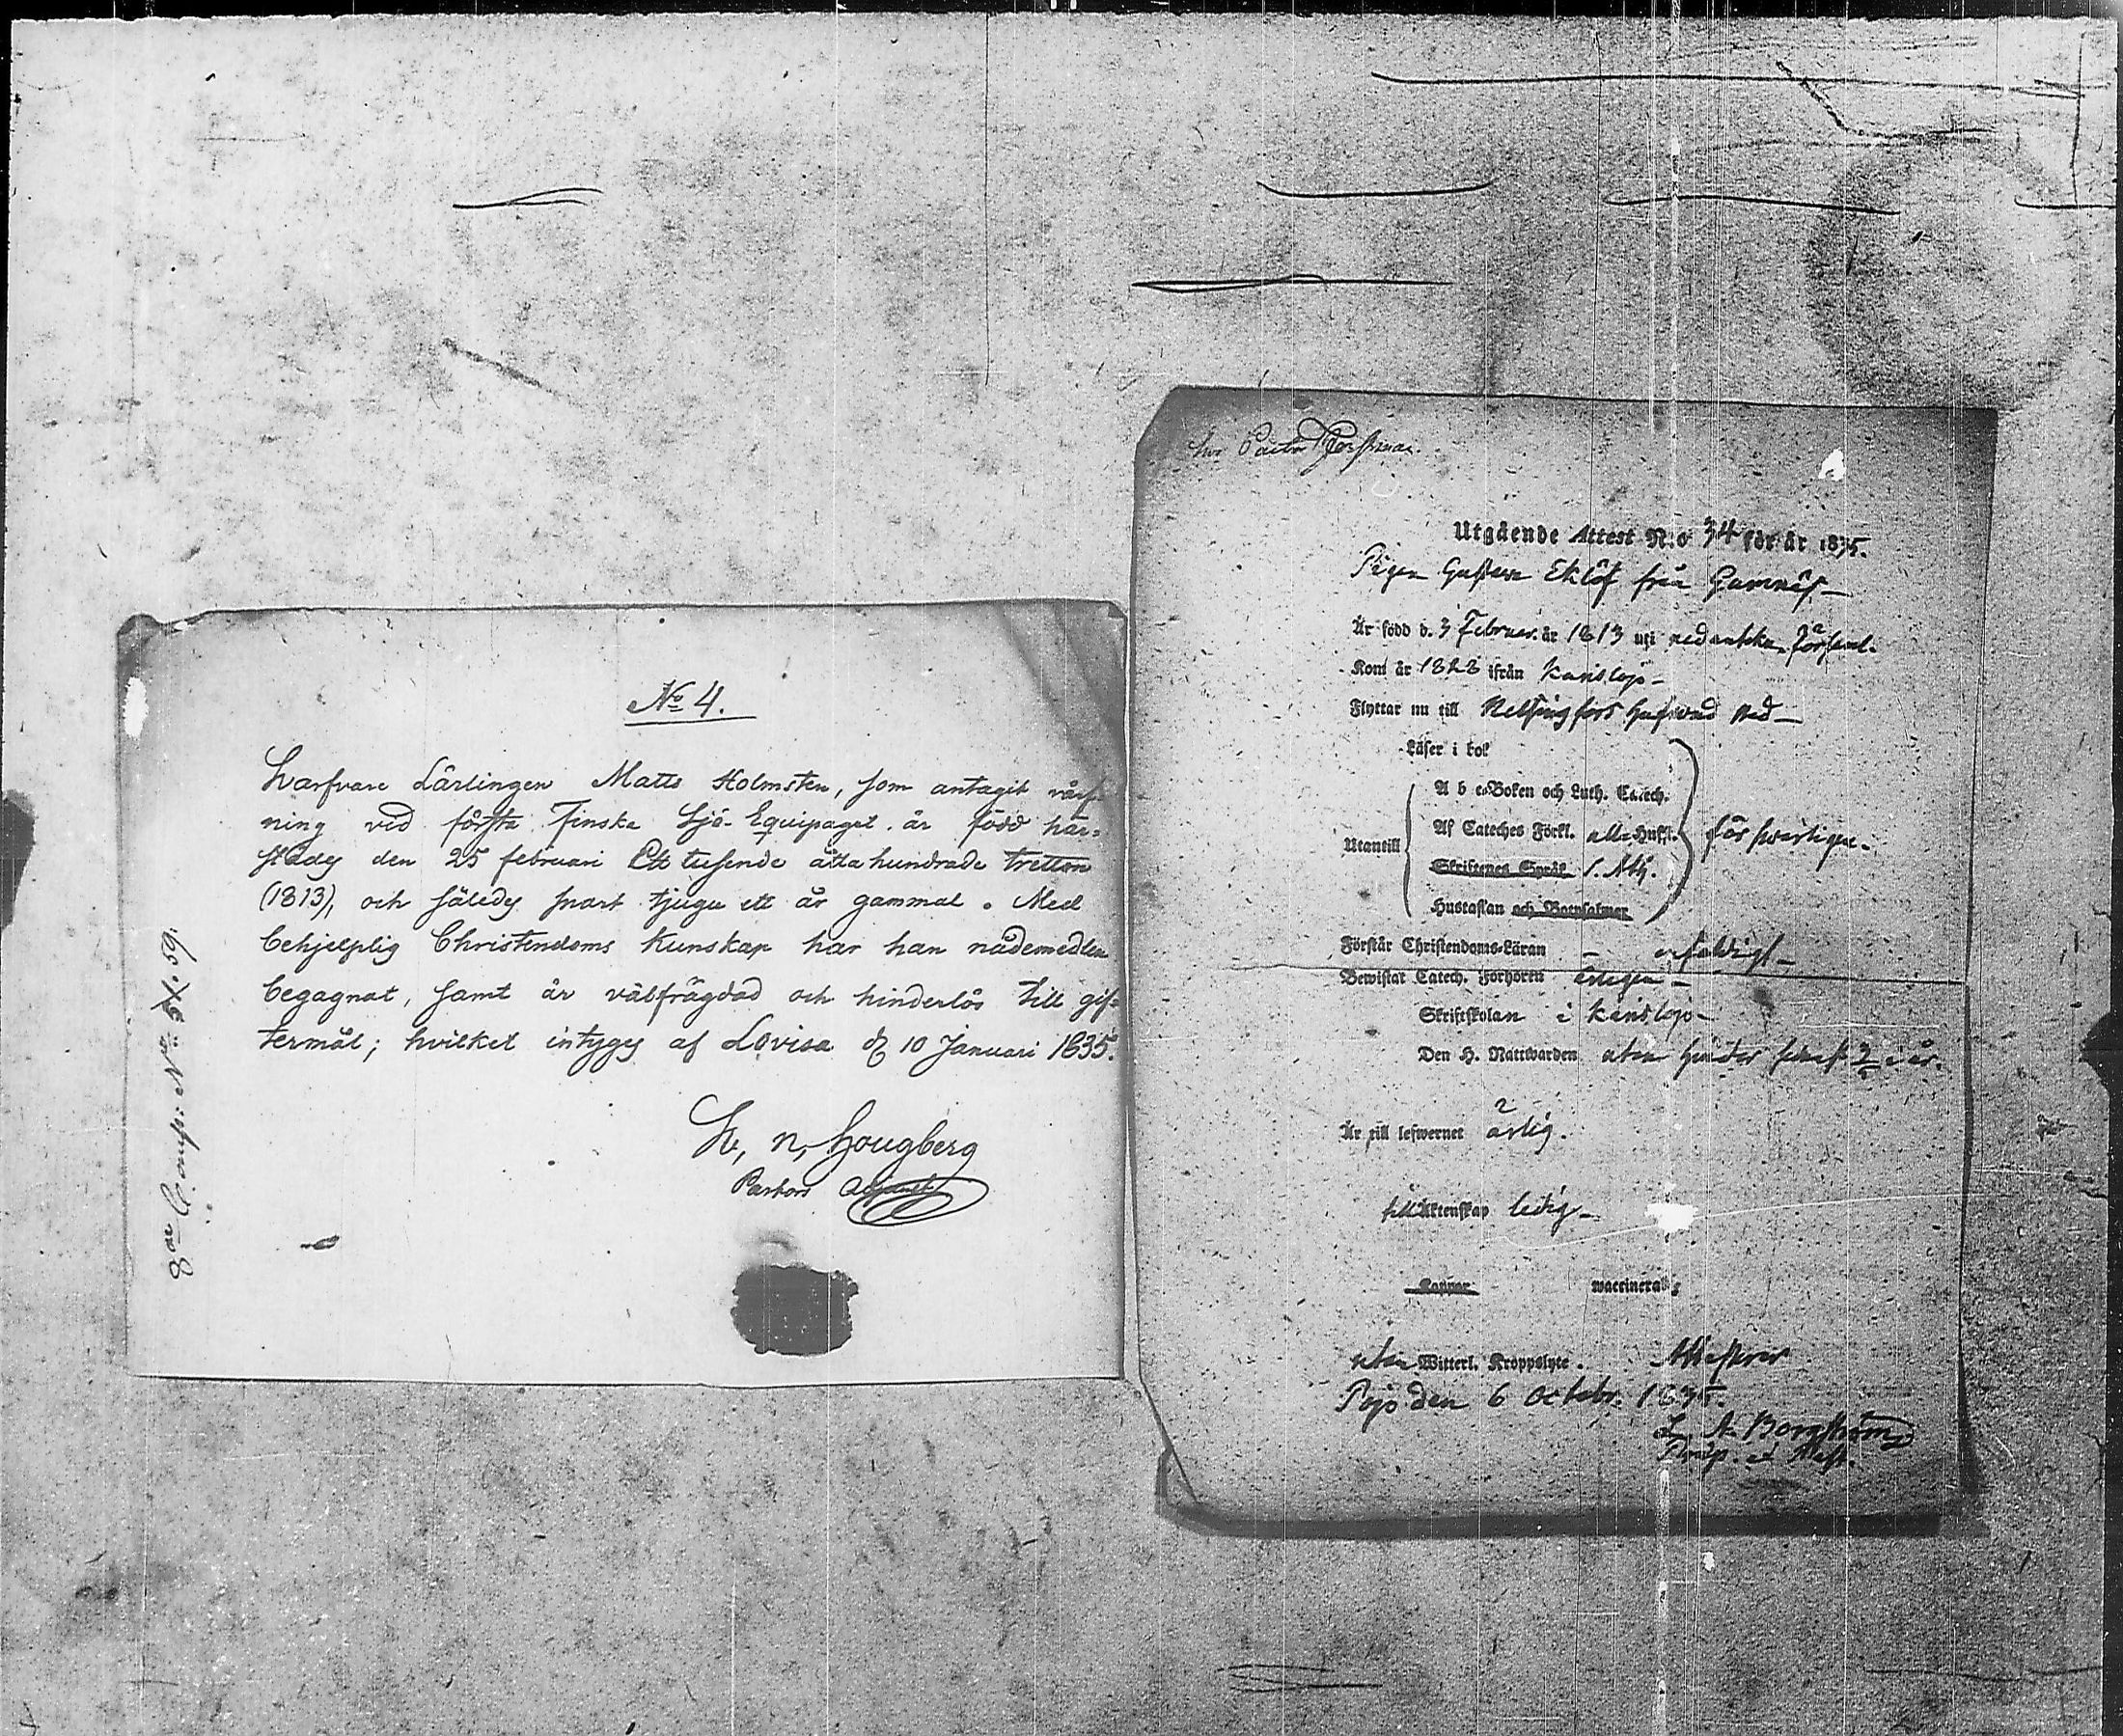 No 4.
Garfvare Lärlingen Matts Holmsten, som antagit värf-
ning vid första Finska Sjö-Equipaget, är född här-
städes den 25 februari Ett tusende åtta hundrade tretton
(1813), och således snart tjugu ett år gammal. Med
behjelplig Christendoms Kunskap har han nådemedlen
begagnat, samt är välfrägdad och hinderlös till gif-
termål; hvilket intygas af Lovisa d. 10 Januari 1835.
Hougberg
Pastors
8de Comp: No 59.
Utgående Attest N:o 34 för år 1835.
Pigan Gustava Eklöf från Gumnäs
Är född d. 3 Februar. år 1813 uti nedanskr. församl.
Kom år 1828 ifrån Karislojo
Flyttar nu till Helsingfors
Läser i bok
Utantill
A b c-Boken och Luth. Catech.
Af Cateches Förkl. alla Hufst.
Skriftenes Språk S. Ath.
Hustaflan och Barnsalmer
försvarligen.
Förstår Christendoms-Läran enfaldigt
Bewistat Catech. Förhören årligen
Skriftskolan i Karislojo
Den H. Nattwarden utan hinder senast i år.
Är till lefwernet ärlig.
till Äktenskap ledig
Koppor waccinerad
utan Witterl. Kroppslyte. Attesterar
Pojo den 6 Octobr. 1835.
L. A. Borgström